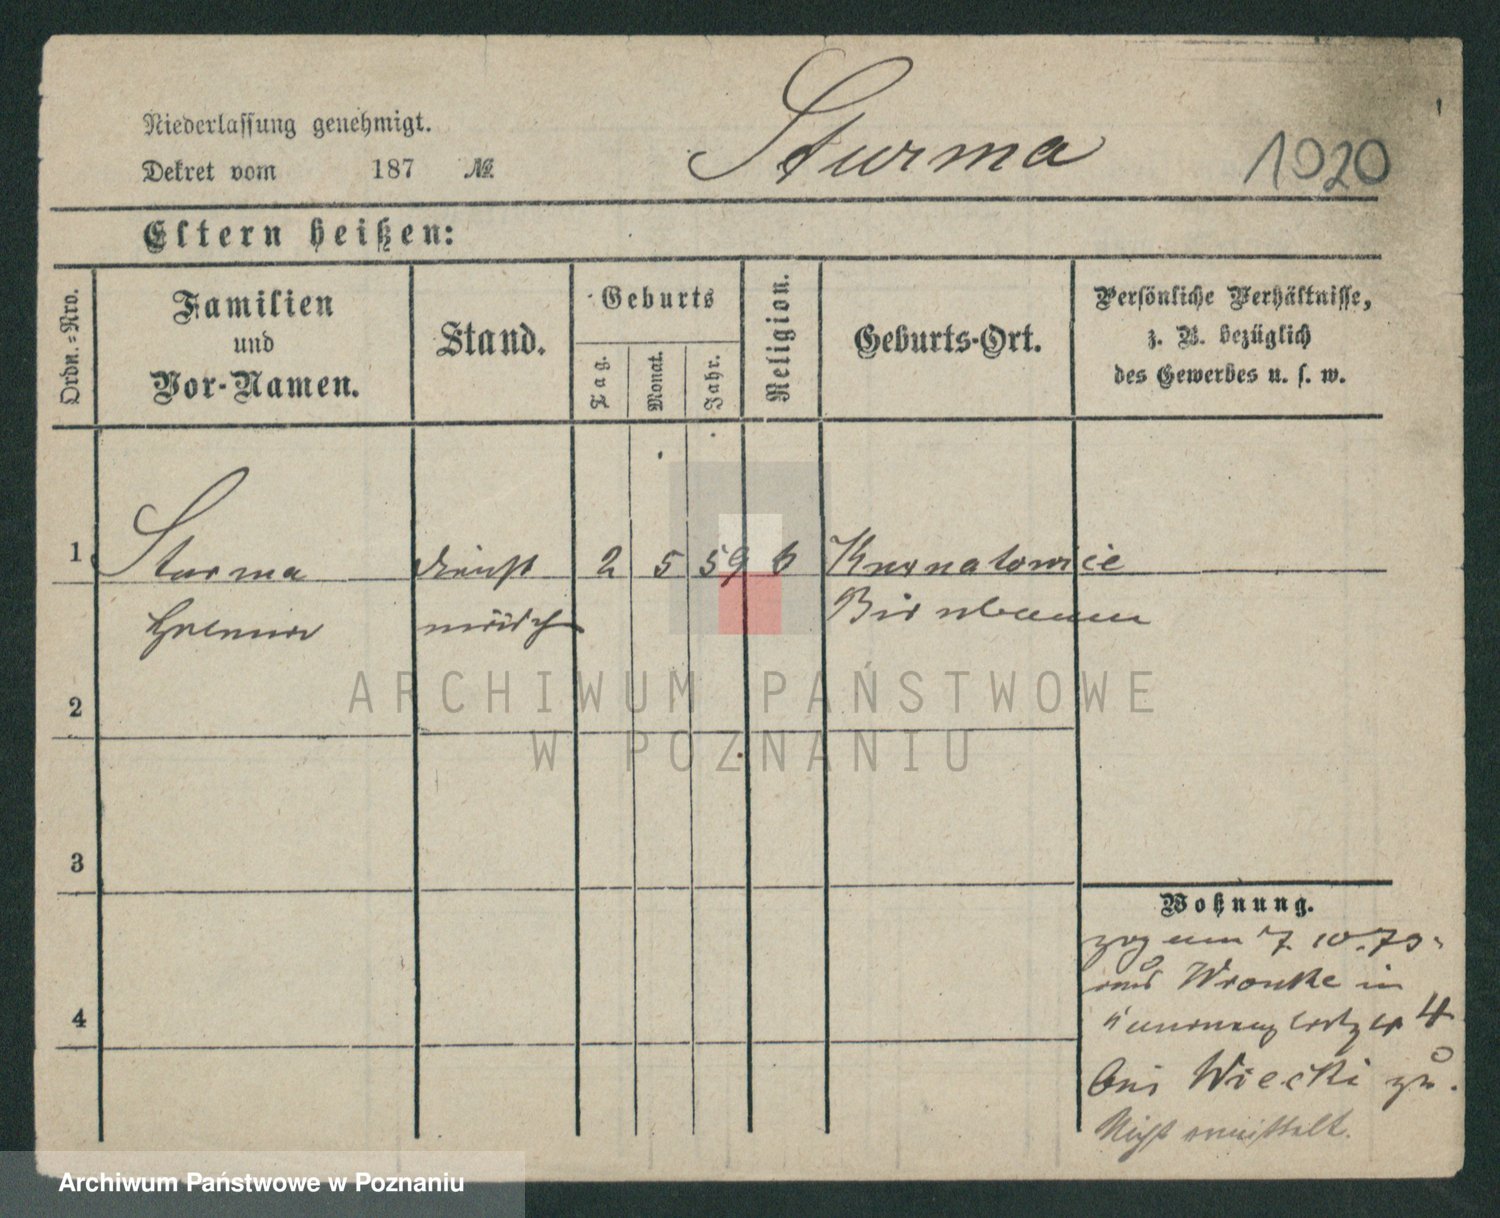 Niederlassung genehmigt.
Dekret vom 187 №
Sturma
1020
Eltern heißen:
Ordn.-Nro.
Familien
und
Vor-Namen.
Stand.
Geburts
Tag.
Monat.
Jahr.
Religion.
Geburts-Ort.
Persönliche Verhältnisse,
z. B. bezüglich
des Gewerbes u. s. w.
1 Sturma dienst 2 5 59 k Kurnatowice
mädch Birnbaum
2
3
4
Wohnung.
zog am 7. 10. 79.
aus Wronke in
4
bei Wiecki zu.
Nicht ermittelt.
ARCHIWUM PAŃSTWOWE
W POZNANIU
Archiwum Państwowe w Poznaniu